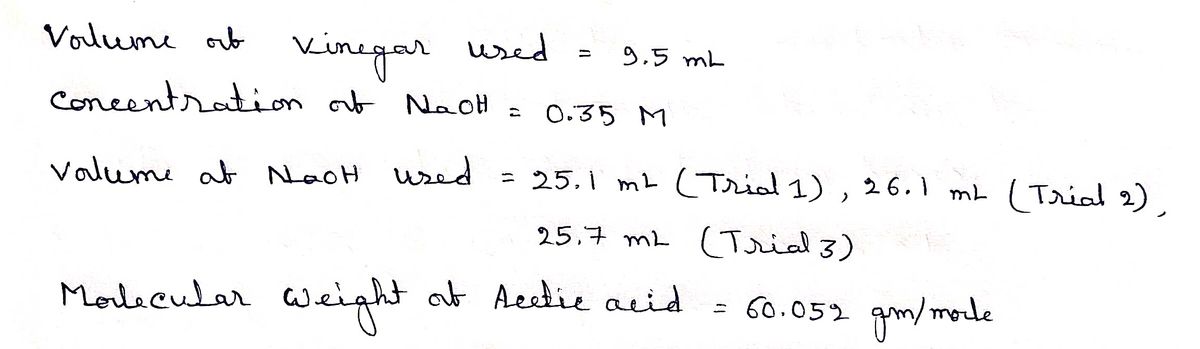 Volume of Vinegar used = 9.5 mL
Concentration of NaOH = 0.35 M
Volume of NaOH used = 25.1 mL (Trial 1), 26.1 mL (Trial 2),
25.7 mL (Trial 3)
Molecular Weight of Acetic acid = 60.052 gm/mole